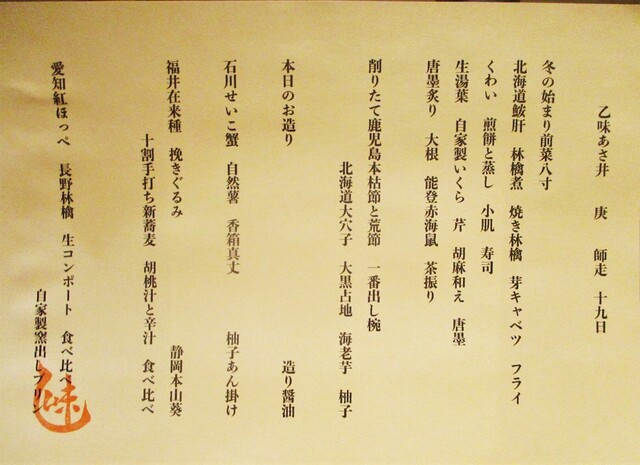 乙味あさ井　庚　師走　十九日
冬の始まり前菜八寸
北海道鮟肝　林檎煮　焼き林檎　芽キャベツ　フライ
くわい　煎餅と蒸し　小肌　寿司
生湯葉　自家製いくら　芹　胡麻和え　唐墨
唐墨炙り　大根　能登赤海鼠　茶振り
削りたて鹿児島本枯節と荒節　一番出し椀
北海道大穴子　大黒占地　海老芋　柚子
本日のお造り　造り醤油
石川せいこ蟹　自然薯　香箱真丈　柚子あん掛け
福井在来種　挽きぐるみ　静岡本山葵
十割手打ち新蕎麦　胡桃汁と辛汁　食べ比べ
愛知紅ほっぺ　長野林檎　生コンポート　食べ比べ
自家製窯出しプリン
味